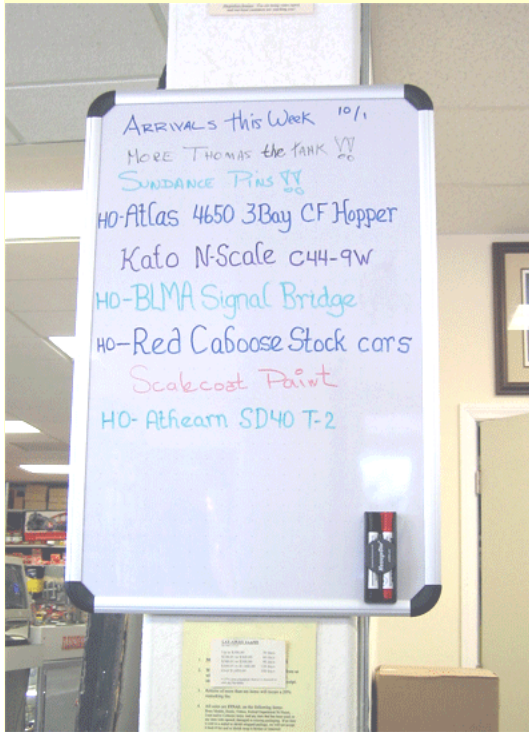 ARRIVALS this Week 10/1
MORE THOMAS the TANK !!
SUNDANCE PINS !!
HO-Atlas 4650 3Bay CF Hopper
Kato N-Scale C44-9W
HO-BLMA Signal Bridge
HO-Red Caboose Stock cars
Scalecoat Paint
HO-Athearn SD40 T-2